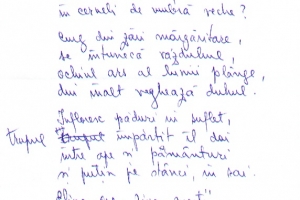 în cerneli de umbră veche?
Curg din zări mărgăritare,
se întunecă văzduhul,
ochiul ars al lumii plânge,
din înalt veghează duhul.
Înfloresc păduri în suflet,
trupul împărțit îl dai
între ape și pământuri
și puțin pe stânci, în